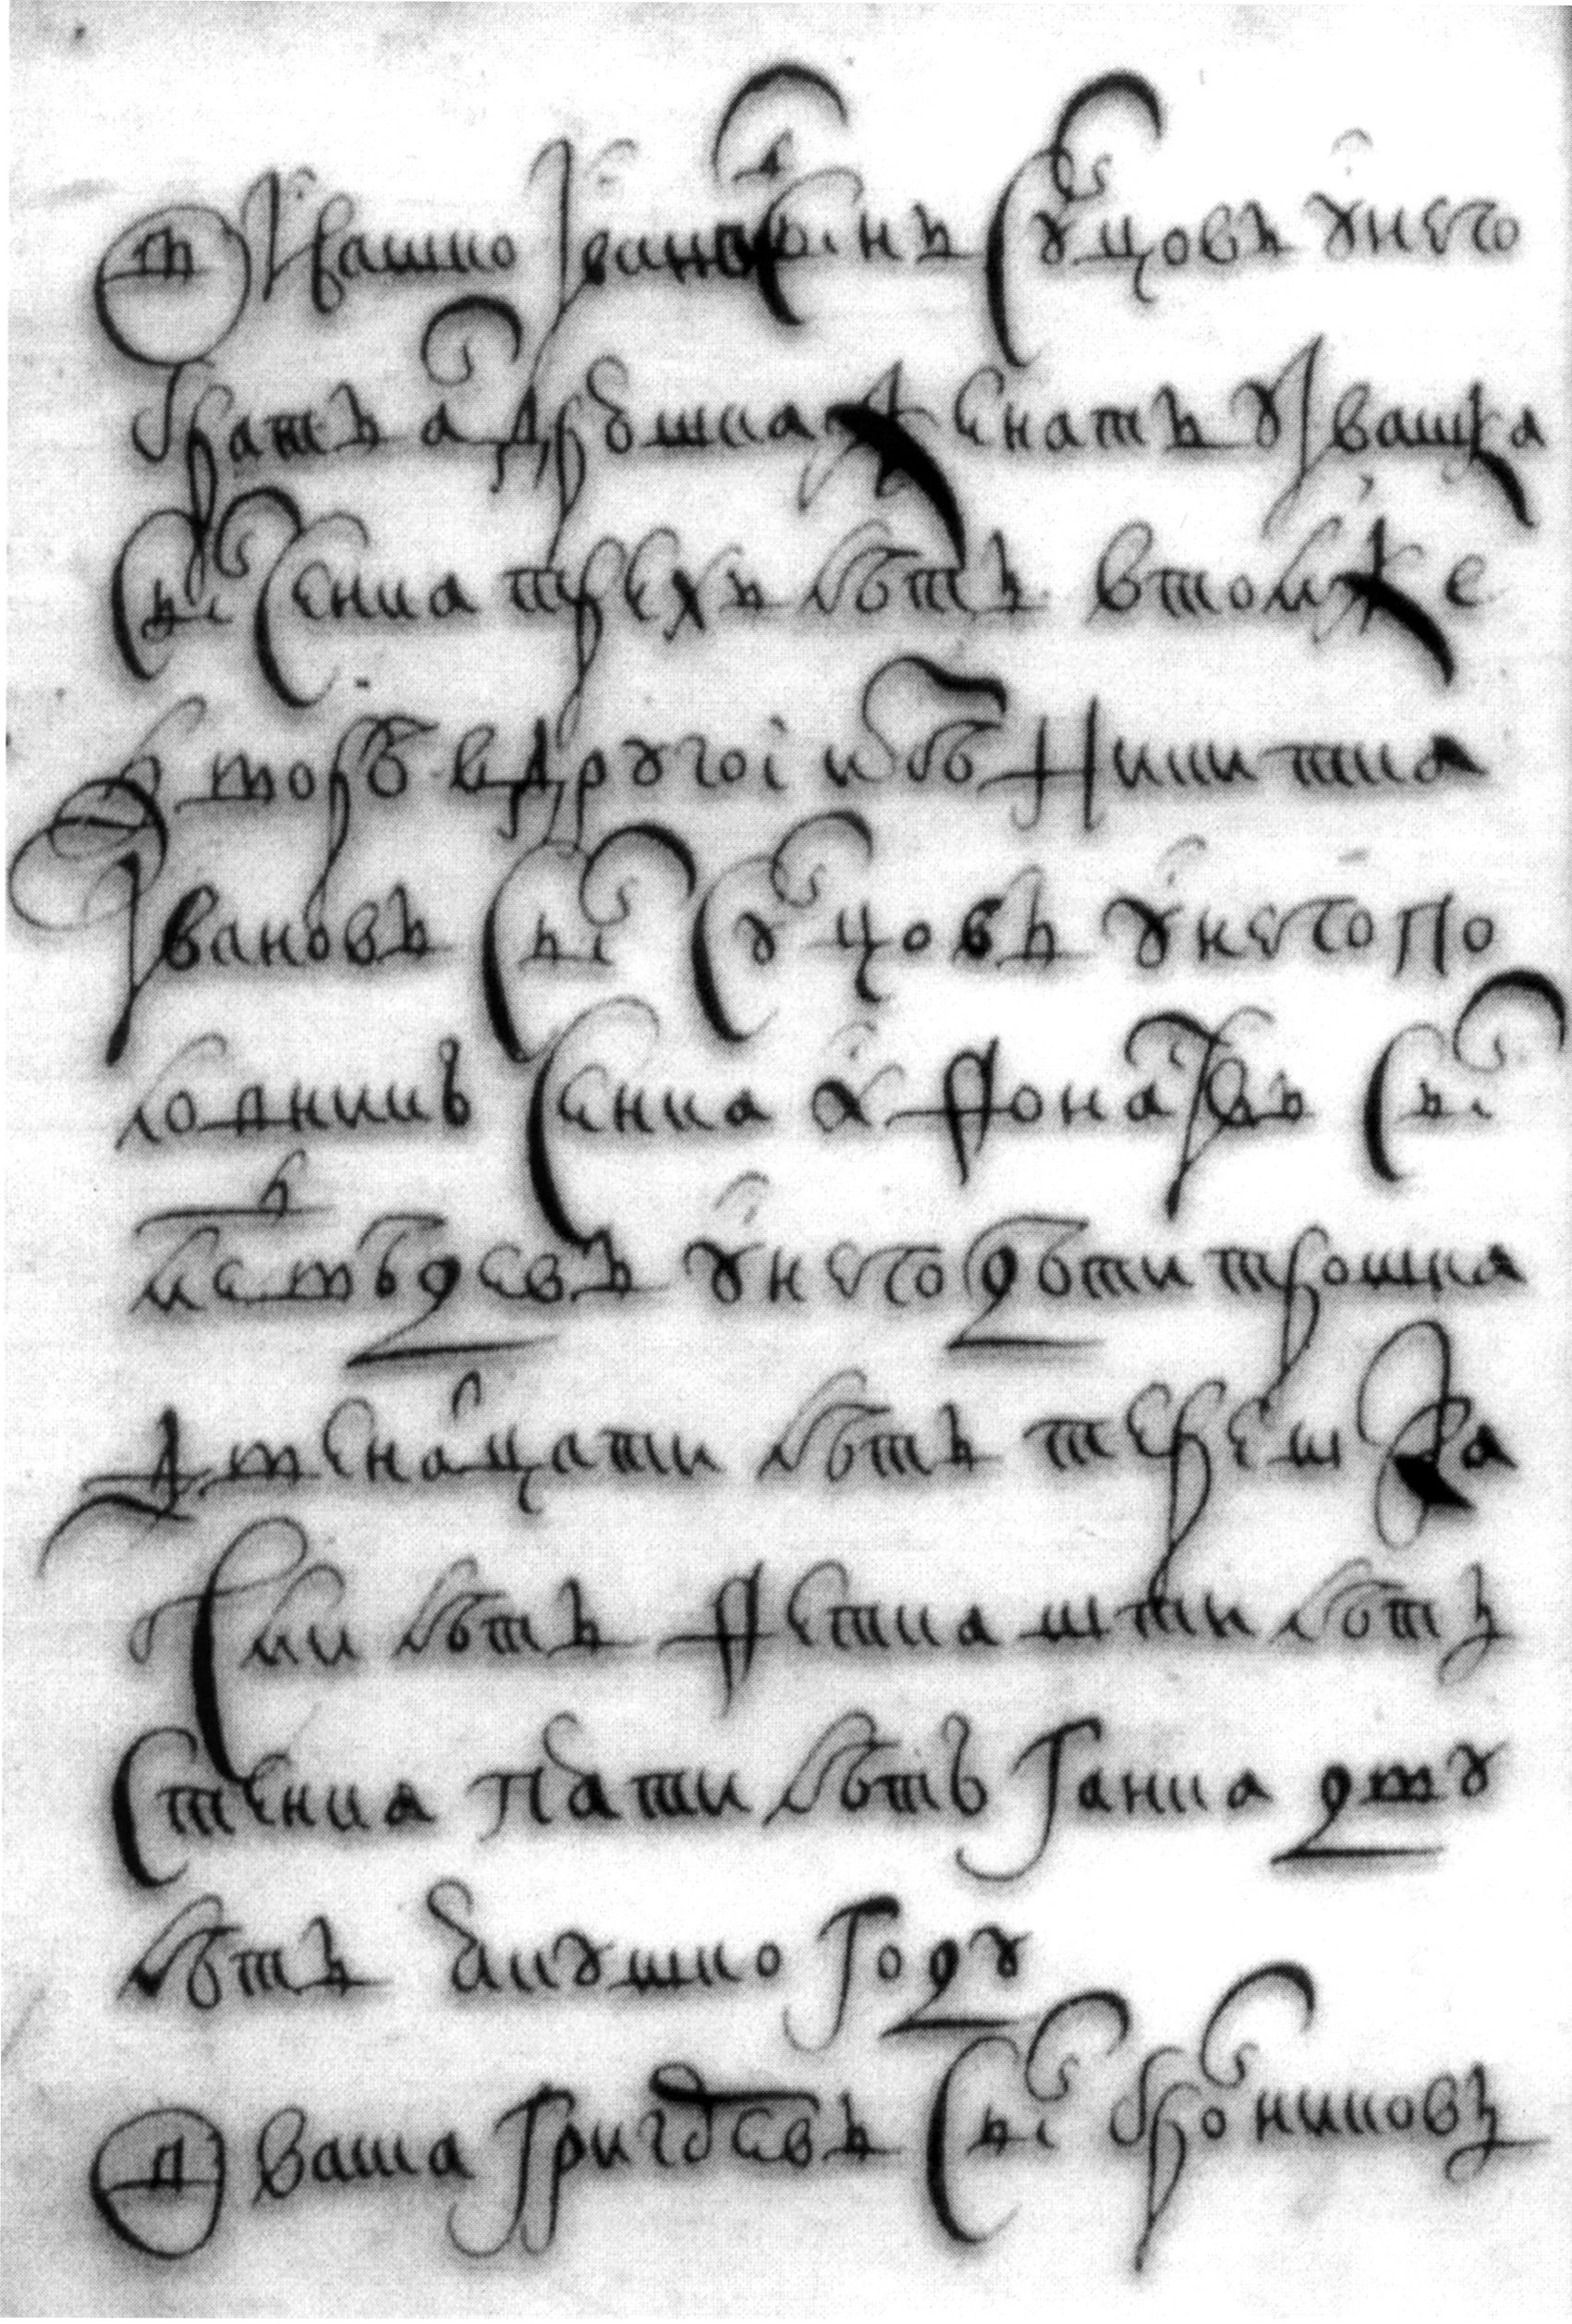 Д Ивашко Іванов снъ Сꙋнцовъ ꙋнего
братъ андрюшка женатъ ꙋІвашка
снъ Сенка трехъ лѣтъ втомже
дворѣ вдрꙋгоі избѣ Никитка
Івановъ снъ Сꙋнцовъ ꙋнего по
ловникъ Сенка Аѳонасьевъ снъ
медвѣдевъ ꙋнего дѣти трошка
двенатцати лѣтъ терешка
семи лѣтъ Ѳетка шти лѣтъ
Стенка пяти лѣтъ Ганка двꙋ
лѣтъ якꙋшко Годꙋ
Д васка Григорьевъ снъ бронниковъ